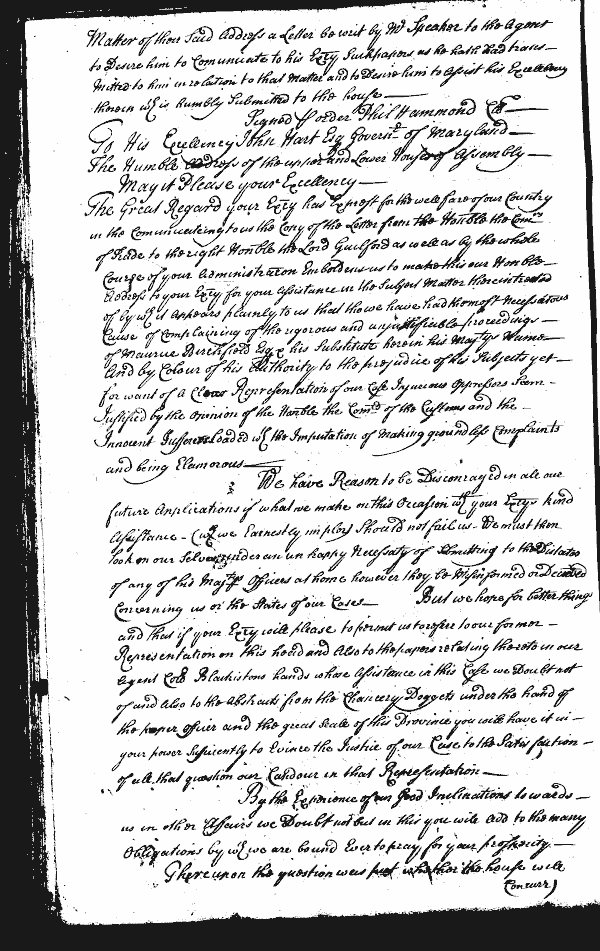 Matter of their said Address a Letter be writ by Mr Speaker to the Agent
to Desire him to Comunicate to his Excy Such papers as he hath had trans=
mitted to him in relation to that Matter and to Desire him to Assist his Excellency
therein wch is humbly Submitted to the house
Signed p order Phil Hammond Cl
To His Excellency John Hart Esq Governr of Maryland
The Humble Address of the upper and Lower Houses of Assembly
May it Please your Excellency
The Great Regard your Excy has Exprest for the wellfare of our Country
in the Communicating to us the Copy of the Letter from the Honble the Comrs
of Trade to the right Honble the Lord Guilford as well as by the whole
Course of your Administration Emboldens us to make this our Honble
Address to your Excy for your Assistance in the Subject Matter therein
of by wch it Appears plainly to us that tho we have had the most Necessitous
Cause of Complaining of the rigorous and unjustifiable proceedings
of Maurice Birchfield Esq & his Substitute herein his Majtys Name
And by Colour of his Authority to the prejudice of his Subjects yet
for want of a Clear Representation of our Case Injurious Oppressors seem
Justified by the Opinion of the Honble the Comrs of the Customs and the
Innocent Sufferer loaded wth the Imputation of making groundless Complaints
and being Clamorous
We have Reason to be Discouraged in all our
future Applications if what we make on this Occasion wth your Excys kind
Assistance - (wch we Earnestly implore) Should not fail us. We must then
look on our Selves under an unhappy Necessaty of Submitting to the Dictates
of any of his Majtys Officers at home however they be Misinformed or Deceived
Concerning us or the States of our Cases But we hope for better things
and that if your Excy will please to permit us to refer to our former
Representation on this head and Also to the papers relating thereto in our
Agent Coll Blackistons hands whose Assistance in this Case we Doubt not
of and Also to the Abstracts from the Chancery Doggets under the hand of
the proper officer and the great Seale of this Province you will have it in
your power Sufficiently to Evince the Justice of our Case to the Satisfaction
of all that question our Candour in that Representation
By the Experience of our Good Inclinations towards
us in other Affairs we Doubt not but in this you will Add to the many
Obligations by wch we are bound Ever to pray for your prosperity.
Thereupon the question was put whether the house will
Concurr)